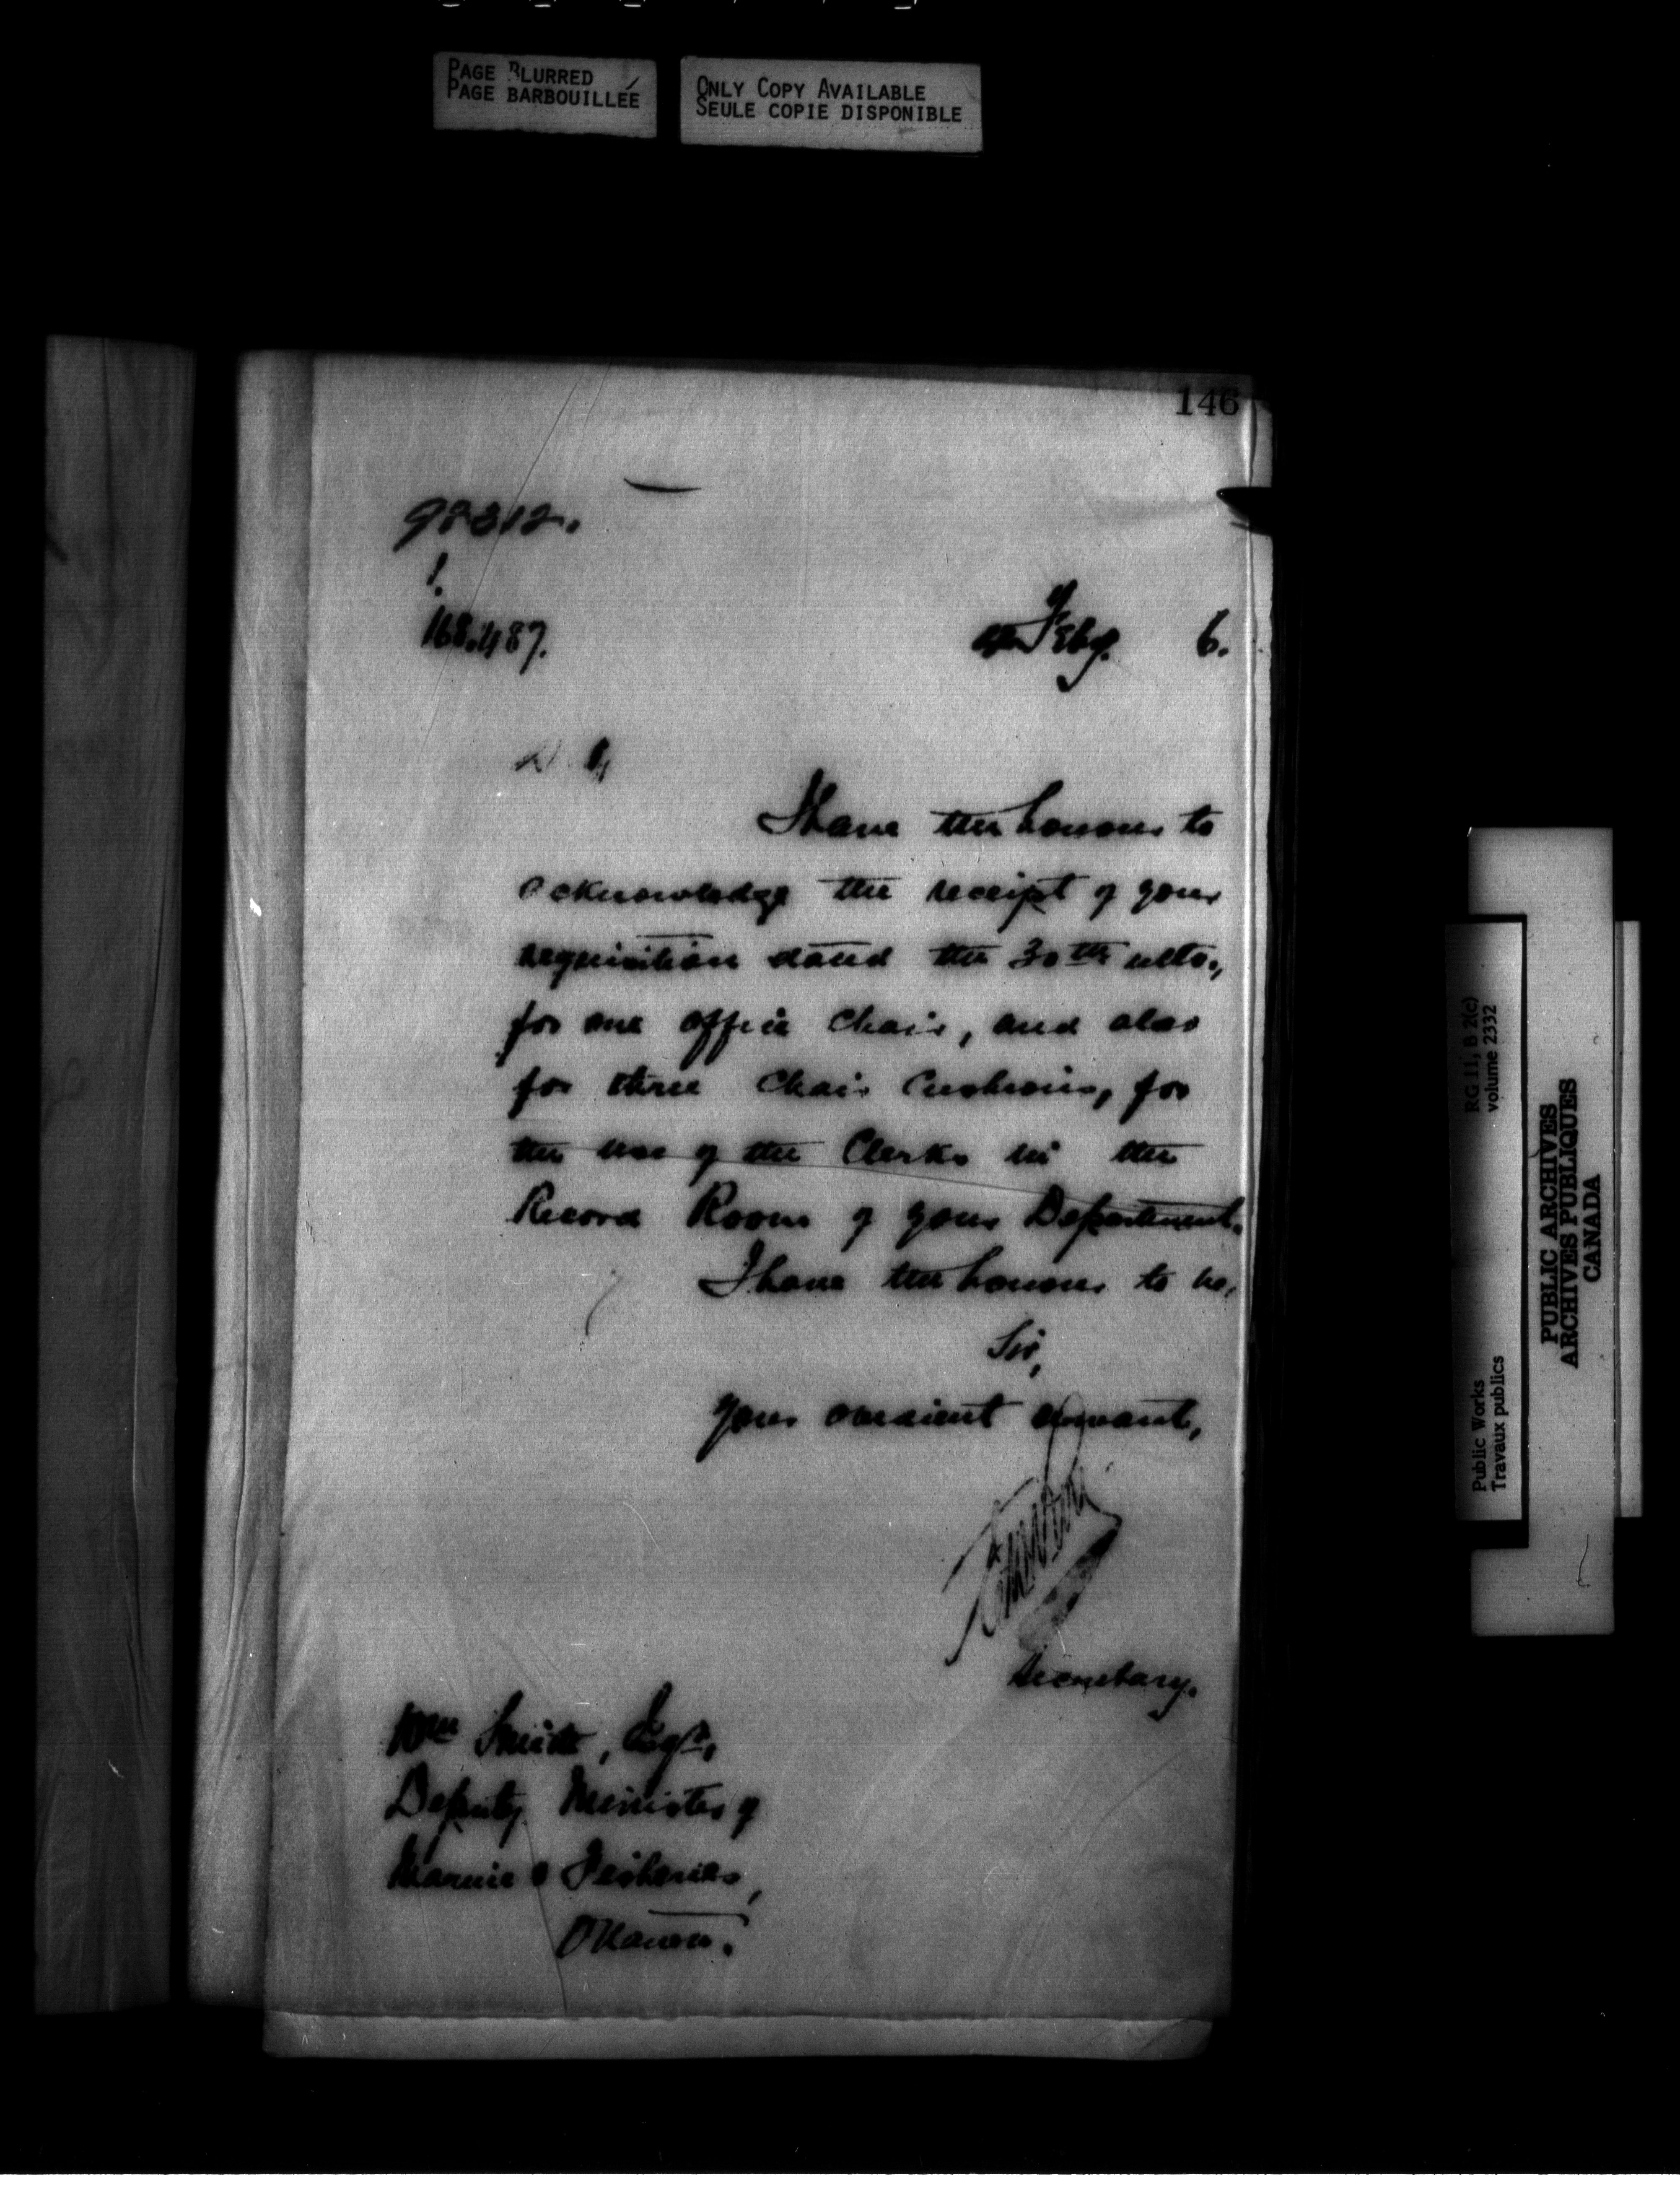 PAGE BLURRED
PAGE BARBOUILLÉE
ONLY COPY AVAILABLE
SEULE COPIE DISPONIBLE
146
98312.
1.
168.487.
Feby. 6.
I have the honour to
acknowledge the receipt of your
requisition dated the 30th ulto.,
for one office Chair, and also
for three Chair Cushions, for
the use of the Clerks in the
Record Room of your Department.
I have the honour to be,
Sir,
Your obedient servant,
Secretary.
Wm Smith, Esqr.,
Deputy Minister of
Marine & Fisheries,
Ottawa.
RG 11, B 2(c)
volume 2332
Public Works
Travaux publics
PUBLIC ARCHIVES
ARCHIVES PUBLIQUES
CANADA